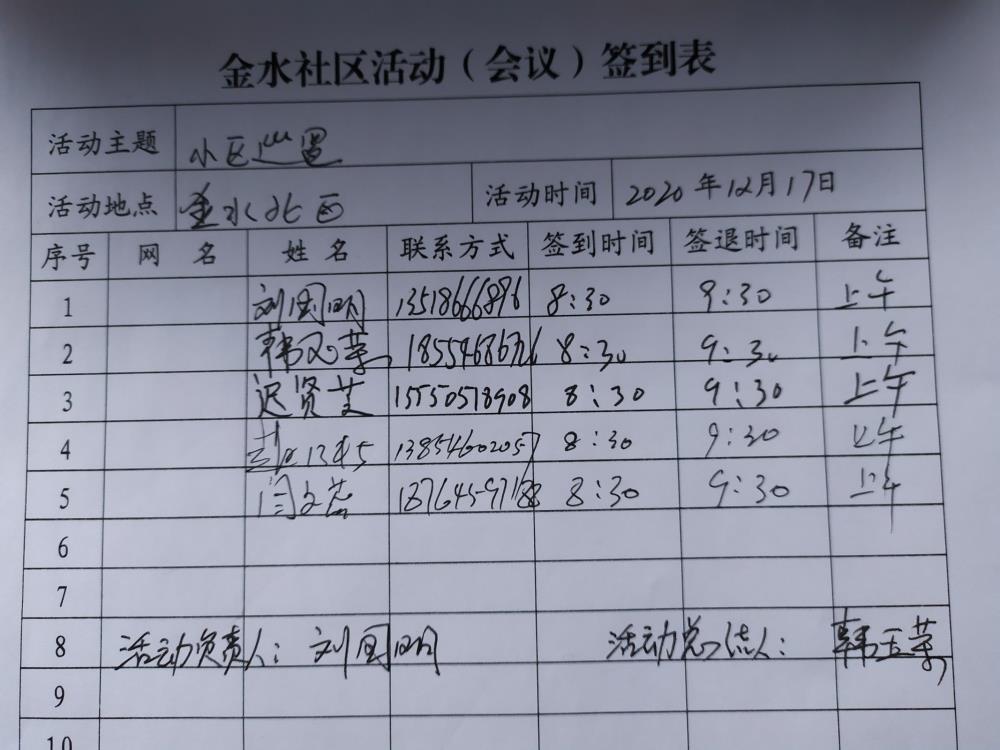 金水社区活动（会议）签到表
活动主题 小区巡逻
活动地点 金水北区 活动时间 2020年12月17日
序号 网名 姓名 联系方式 签到时间 签退时间 备注
1 刘国明 13518666896 8:30 9:30 上午
2 韩玉荣 8:30 9:30 上午
3 迟贤芝 15550578908 8:30 9:30 上午
4 13854602057 8:30 9:30 上午
5 闫文芯 8:30 9:30 上午
6
7
8 活动负责人：刘国明 活动总结人：韩玉荣
9
10